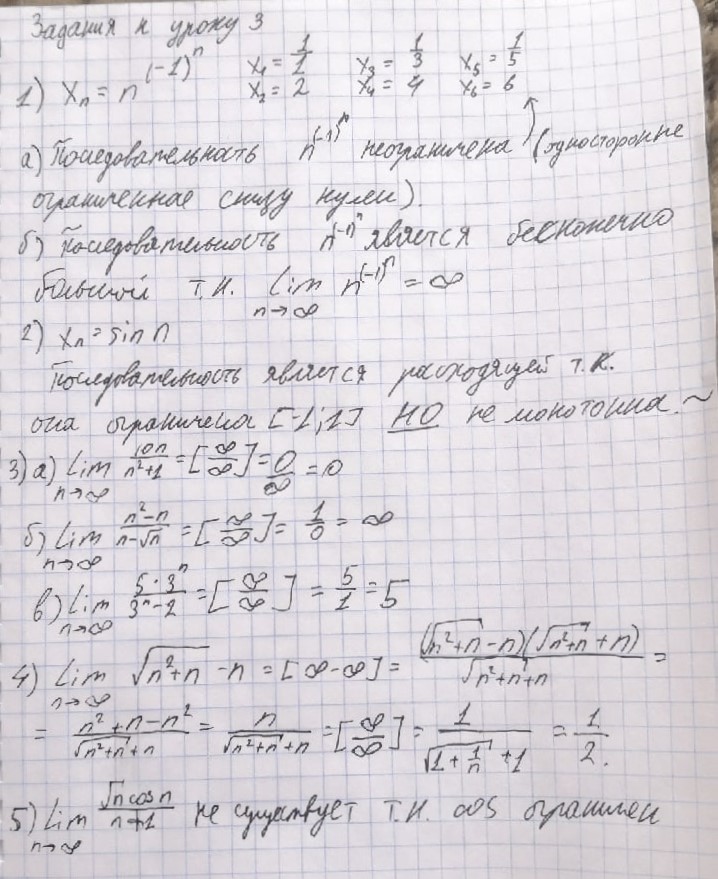 Задания к уроку 3
1) xₙ = n^(-1)^n x₁ = 1/1 x₃ = 1/3 x₅ = 1/5
x₂ = 2 x₄ = 4 x₆ = 6
а) Последовательность n^(-1)^n неограничена (односторонне
ограниченная снизу нулем).
б) Последовательность n^(-1)^n является бесконечно
большой т.к. lim n→∞ n^(-1)^n = ∞
2) xₙ = sin n
Последовательность является расходящей т.к.
она ограничена [-1;1] НО не монотонна. ~
3) а) lim n→∞ 10n/(n²+1) = [∞/∞] = 0/∞ = 0
б) lim n→∞ (n²-n)/(n-√n) = [∞/∞] = 1/0 = ∞
в) lim n→∞ (5·3^n)/(3^n-2) = [∞/∞] = 5/1 = 5
4) lim n→∞ √(n²+n) - n = [∞-∞] = (√(n²+n) - n)(√(n²+n) + n)/(√(n²+n) + n) =
= (n²+n-n²)/(√(n²+n) + n) = n/(√(n²+n) + n) = [∞/∞] = 1/(√(1+1/n) + 1) = 1/2.
5) lim n→∞ (√n cos n)/(n+1) не существует т.к. cos ограничен